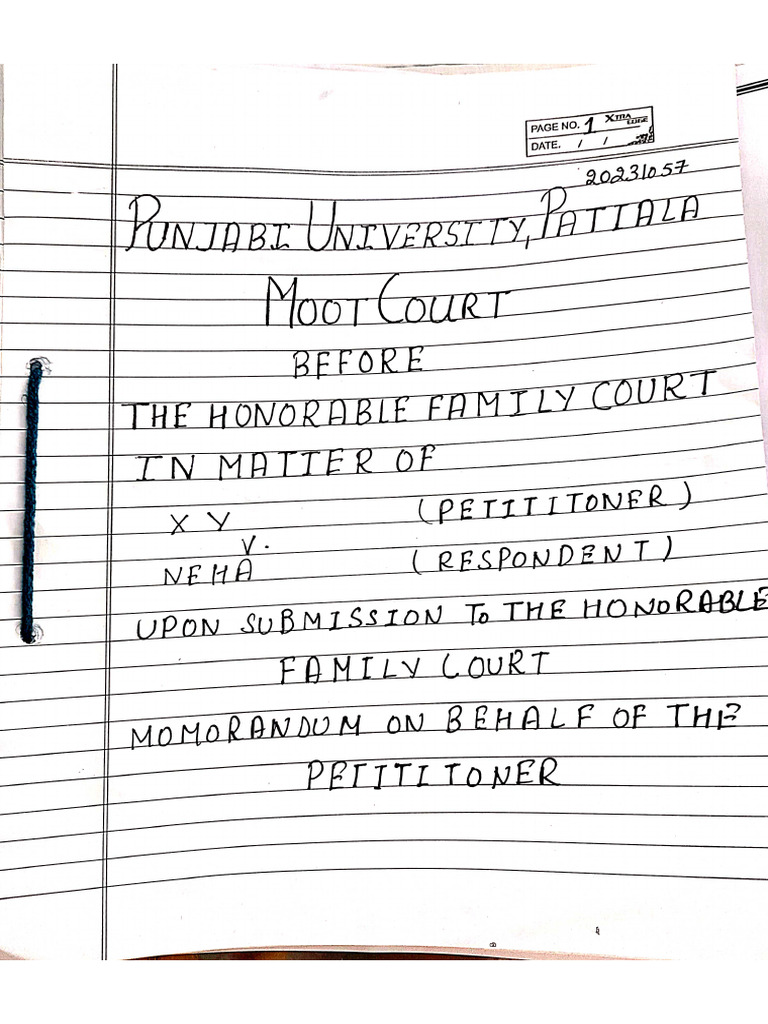 PAGE NO. 1 XTRA EDGE
DATE. / /
20231057
PUNJABI UNIVERSITY, PATIALA
MOOT COURT
BEFORE
THE HONORABLE FAMILY COURT
IN MATTER OF
X Y (PETITITONER)
V.
NEHA (RESPONDENT)
UPON SUBMISSION TO THE HONORABLE
FAMILY COURT
MOMORANDUM ON BEHALF OF THE
PETITITONER